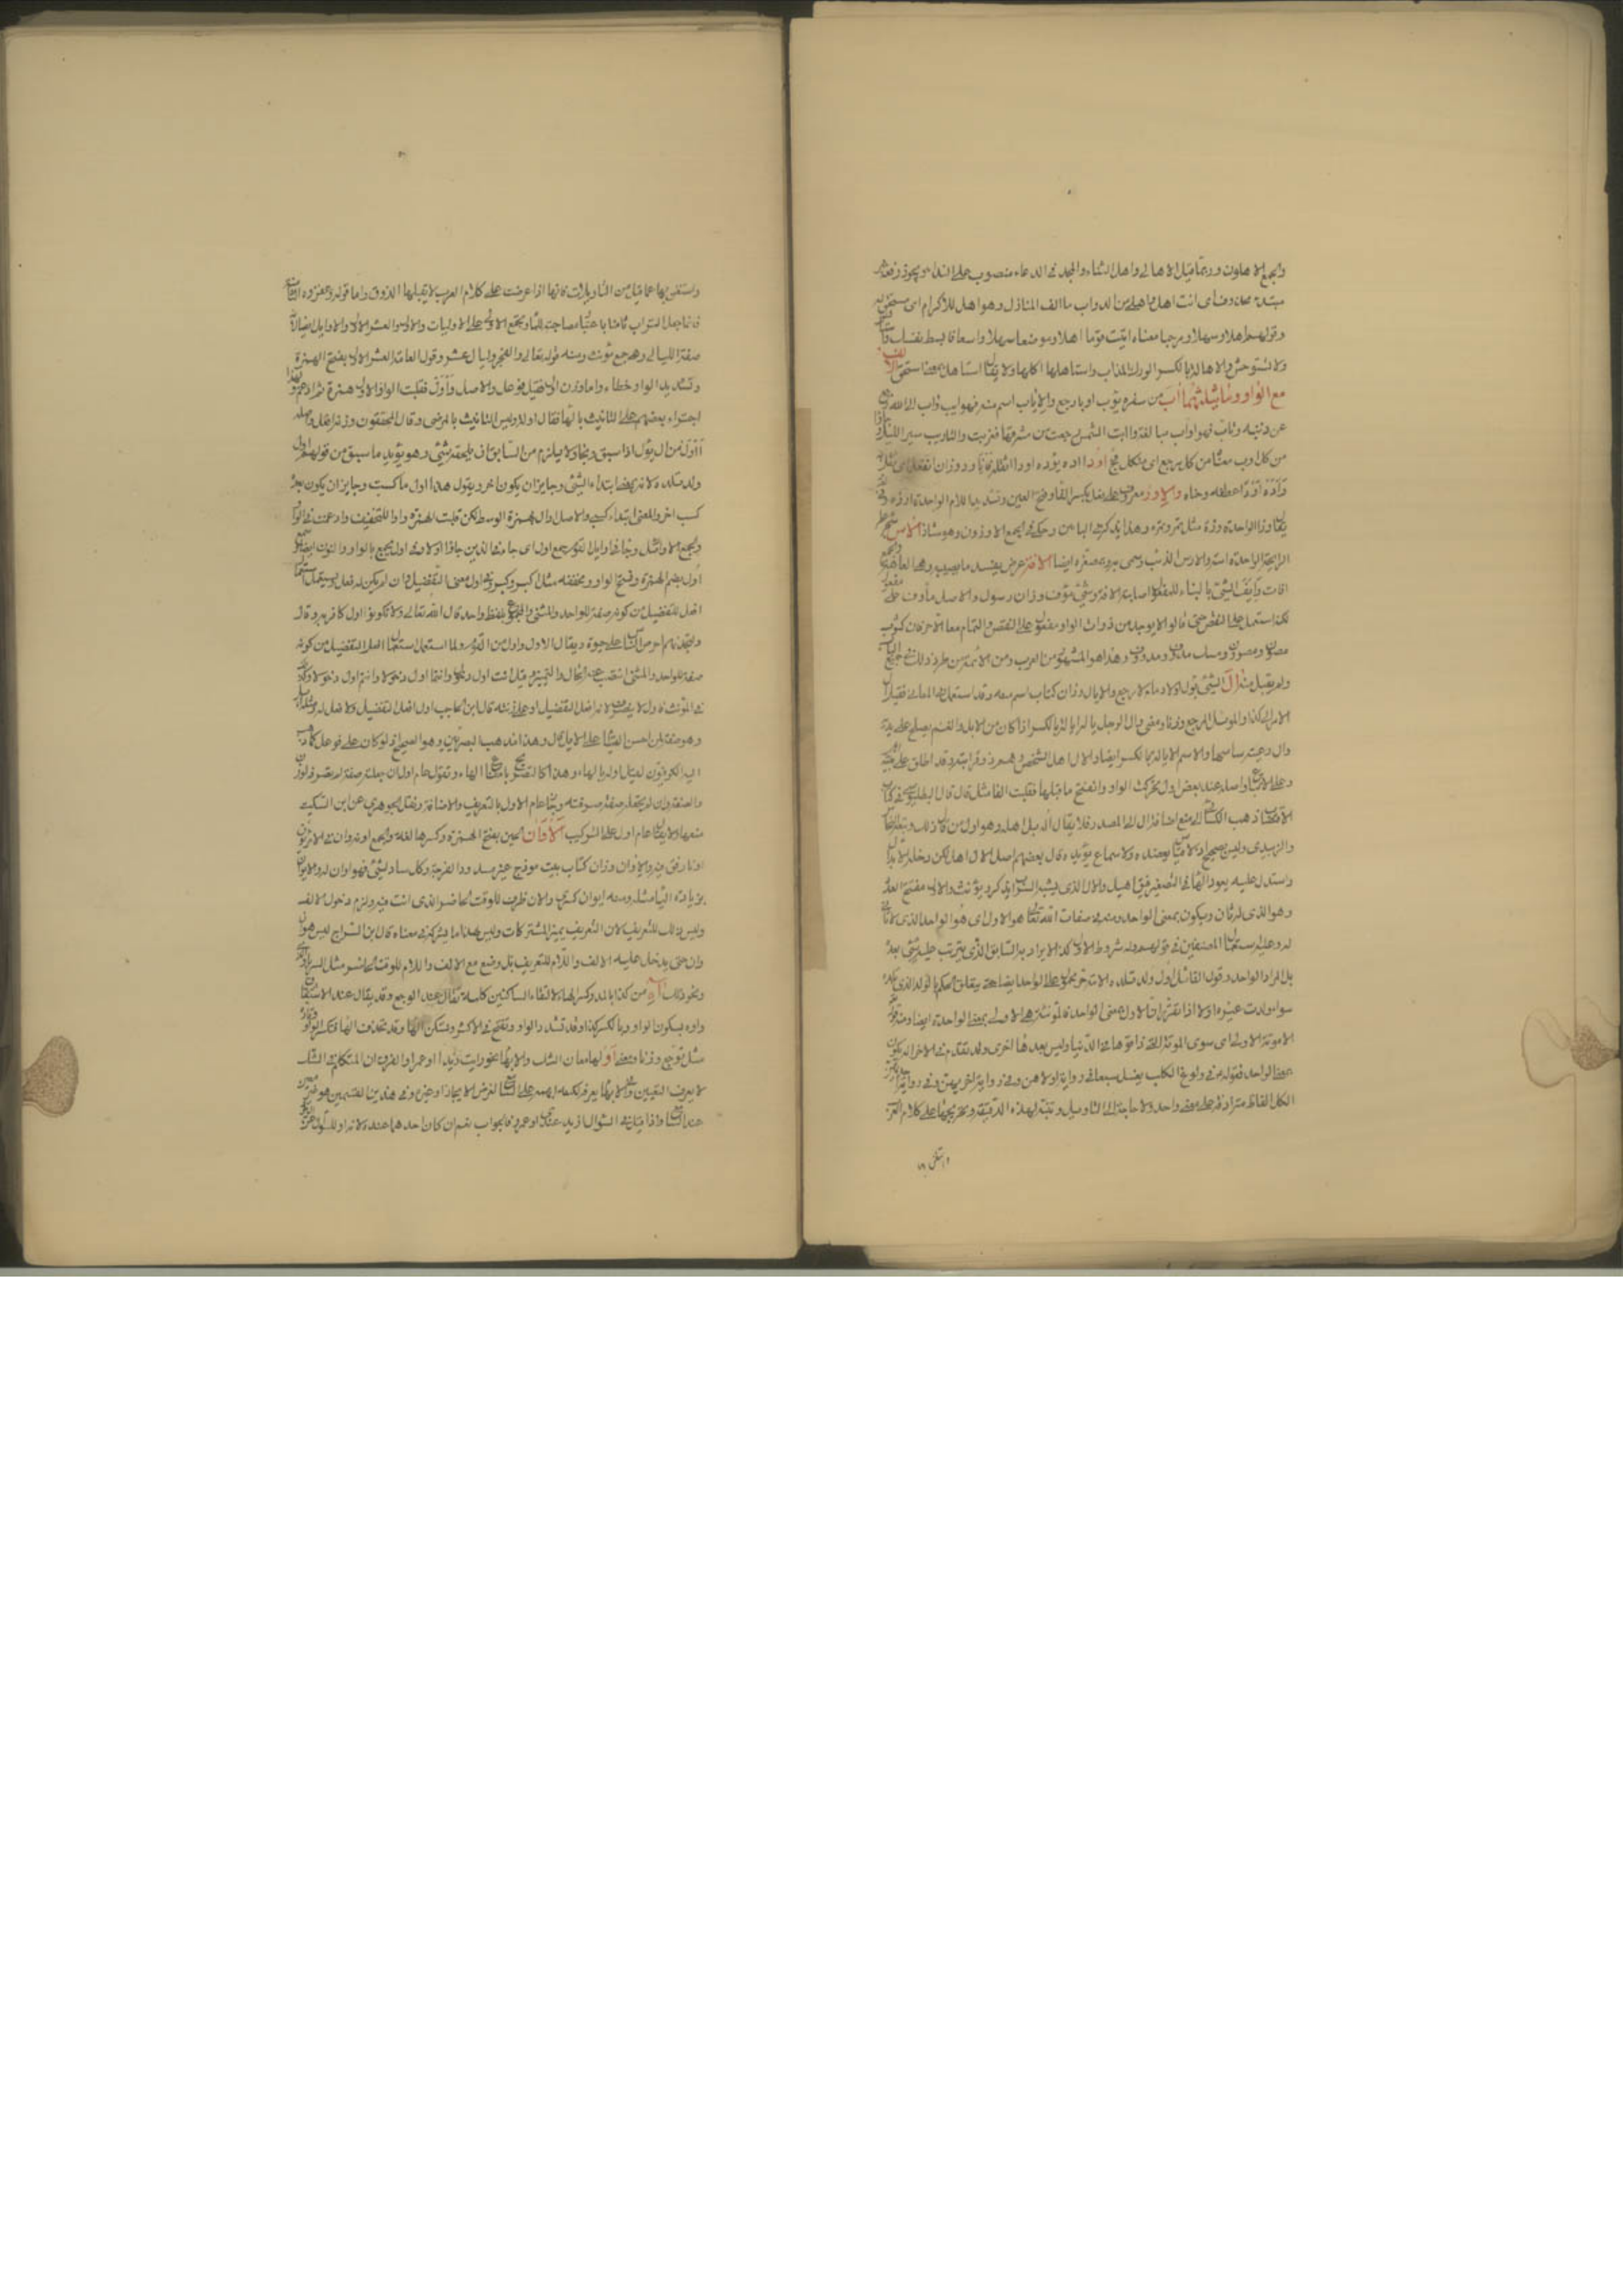 والجمع الاهلون وربما قيل الاهالى واهل الثناء والمجد فى الدعاء منصوب على النداء ويجوز رفعه
مبتدء محذوف اى انت اهل والاهلى من الدواب ما الف المنازل وهو اهل للاكرام اى مستحق له
وقولهم اهلا وسهلا ومرحبا معناه اتيت قوما اهلا وموضعا سهلا واسعا فابسط نفسك
ولا تستوحش والاهالة بالكسر الودك المذاب واستاهلها اكلها ولا يقال استاهل بمعنى استحق الالف
مع الواو وما يثلثهما آب من سفره يؤب اوبا رجع والاياب اسم منه فهو ايب وآب الى الله رجع
عن ذنبه وتاب فهو اواب مبالغة وآبت الشمس رجعت من مشرقها فغربت والتاويب سير الليل
من كل اوب معناه من كل مرجع اى من كل فج اود آده يؤده اودا اثقله فانآد وزان انفعل اى ثقل به
وآده اودا عطفه وحناه والاوز معروف على فعل بكسر الفاء وفتح العين وتشديد اللام الواحدة اوزة وفى
يقال وز الواحدة وزة مثل تمر وتمرة وهذا يذكر فى الباب وحكى فى الجمع الاوزون وهو شاذ الآس شجر
الرايحة الواحدة آسة والاوس الذئب وسمى به وبمصغره ايضا الآفة عرض يفسد ما يصيبه وهى العاهة والجمع
آفات وايف الشئ بالبناء للمفعول اصابته الآفة وشئ مؤف وزان رسول والاصل مأوف على مفعول
لكنه استعمل على النقص حتى قالوا لا يوجد من ذوات الواو مفعول على النقص والتمام معا الا حرفان ثوب
مصون ومصوون ومسك مدوف ومدووف وهذا هو المشهور من العرب ومن الائمة من طرد ذلك فى جميع الباب
ولم يقبل منه آل الشئ يؤل اولا ومآلا رجع والايال وزان كتاب اسم منه وقد استعمل فى المعانى فقيل آل
الامر الى كذا والموئل المرجع وزنا ومعنى وآل الرجل ماله ايالة بالكسر اذا كان من الابل والغنم يصلح على يديه
وآل رعيته ساسها والاسم الايالة بالكسر ايضا والآل اهل الشخص وهم ذوو قرابته وقد اطلق على اهل بيته
وعلى الاتباع واصله عند بعض اول تحركت الواو وانفتح ما قبلها فقلبت الفا مثل قال قال البطليوسى فى كتاب
الاقتضاب ذهب الكسائى الى منع اضافة آل الى المضمر فلا يقال آله بل اهله وهو اول من قال ذلك وتبعه النحاس
والزبيدى وليس بصحيح اذ لا قياس يعضده ولا سماع يؤيده قال بعضهم اصل الآل اهل لكن دخله الابدال
واستدل عليه بعود الهاء فى التصغير فيقال اهيل والآل الذى يشبه السراب يذكر ويؤنث والاول مفتتح العدد
وهو الذى له ثان ويكون بمعنى الواحد ومنه فى صفات الله تعالى هو الاول اى هو الواحد الذى لا ثانى
له وعليه استعمال المصنفين فى قولهم وله شروط الاول كذا لا يراد به السابق الذى يترتب عليه شئ بعده
بل المراد الواحد وقول القائل اول ولد تلده الامة حر محمول على الواحد ايضا حتى يتعلق الحكم بالولد الذى تلده
سواء ولدت غيره او لا اذا تقرر ان الاول بمعنى الواحد فالمؤنثة هى الاولى بمعنى الواحدة ايضا ومنه قوله
الا موتة الاولى اى سوى الموتة التى ذاقوها فى الدنيا وليس بعدها اخرى وقد تقدم فى الآخر انه يكون
بمعنى الواحد فقوله فى ولوغ الكلب يغسل سبعا فى رواية اولاهن وفى رواية اخريهن وفى رواية احديهن
الكل الفاظ مترادفة على معنى واحد ولا حاجة الى التاويل وتنبه لهذه الدقيقة وتخريجها على كلام العرب
واستغن بها
واستغن بها عما قيل من التاويلات فانها اذا عرضت على كلام العرب لا يقبلها الذوق واما قوله وعفروه الثامنة
فانما جعل التراب ثامنا باعتبار مصاحبته للماء وتجمع الاولى على الاوليات والاول والعشر الاول والاوايل ايضا لانه
صفة الليالى وهى جمع مؤنث ومنه قوله تعالى والفجر وليال عشر وقول العامة العشر الاول بفتح الهمزة
وتشديد الواو خطاء واما وزن اول فقيل فوعل والاصل ووأل فقلبت الواو الاولى همزة ثم ادغم ولهذا
اجتراء بعضهم على التانيث بالهاء فقال اولة وليس التانيث بالمرضى وقال المحققون وزنه افعل واصله
أأول من آل يؤل اذا سبق وجاء ولا يلزم من السابق ان يلحقه شئ وهو يؤيد ما سبق من قولهم اول
ولد تلده لانه بمعنى ابتداء الشئ وجايز ان يكون لا شئ بعده ويقول هذا اول ما كسبت وجايز ان يكون بعده
كسب آخر والمعنى ابتداء كسبى والاصل أأول بهمزة الوسط لكن قلبت الهمزة واوا للتخفيف وادغمت فى الواو
والجمع الاوائل وجاء فى اوايل القوم جمع اول اى جاء فى الذين جاؤا اولا وفى اول يجمع بالواو والنون ايضا وسمع
أول بضم الهمزة وفتح الواو ومخففة مثل اكبر وكبر وفى اول معنى التفضيل وان لم يكن له فعل ويستعمل استعمال
افعل التفضيل من كونه صفة للواحد والمثنى والمجموع بلفظ واحد قال الله تعالى ولا تكونوا اول كافر به وقال
ولتجدنهم احرص الناس على حيوة ويقال الاول واول من القوم ولما استعمل استعمال افعل التفضيل من كونه
صفة للواحد والمثنى انتصب عنه الحال والتمييز فقيل انت اول دخولا وانتما اول دخولا وانتم اول دخولا وكذلك
فى المؤنث فاول لا ينصرف لانه افعل التفضيل او على زنته قال ابن الحاجب اول افعل التفضيل ولا فعل له ومثله آبل
وهو صفة لمن احسن القيام على الابل قال وهذا مذهب البصريين وهو الصحيح اذ لو كان على فوعل كما ذهب
اليه الكوفيون لقيل اولة بالهاء وهذا كالتصريح بامتناع الهاء وتقول عام اول ان جعلته صفة لم تصرفه لوزن الفعل
والصفة وان لم تجعله صفة صرفته وتقول عام الاول بالتعريف والاضافة ونقل الجوهرى عن ابن السكيت
منعها ولا يقال عام اول على التركيب الاوان الحين بفتح الهمزة وكسرها لغة والجمع آونة وآن يئون
اونا رفق فى السير والاوان وزان كتاب بيت موزج غير مسدود الفرجة وكل سناد لشئ فهو اوان له والايوان
بزيادة الياء مثله ومنه ايوان كسرى والآن ظرف للوقت الحاضر الذى انت فيه ولزم دخول الالف
وليس ذلك للتعريف لان التعريف يميز المشتركات وليس لهذا ما يشركه فى معناه قال ابن السراج ليس هو آن
وآن حتى يدخل عليه الالف واللام للتعريف بل وضع مع الالف واللام للوقت الحاضر مثل الثريا والذى
ونحو ذلك آه من كذا بالمد وكسر الهاء لالتقاء الساكنين كلمة تقال عند الوجع وقد يقال عند الاشفاق
واوه بسكون الواو وبالكسر كذا وقد تشدد الواو وتفتح وتسكن الهاء وقد تحذف الهاء فتكسر الواو وتاوه
مثل توجع وزنا ومعنى أو لها معان الشك والابهام نحو رايت زيدا او عمرا والفرق ان المتكلم فى الشك
لا يعرف التعيين وفى الابهام يعرفه لكنه ابهمه على السامع لغرض الايجاز او غيره وفى هذين القسمين هو غير معين
عند السامع واذا قيل فى السؤال ازيد عندك او عمرو فالجواب نعم ان كان احدهما عنده لان او للسؤال